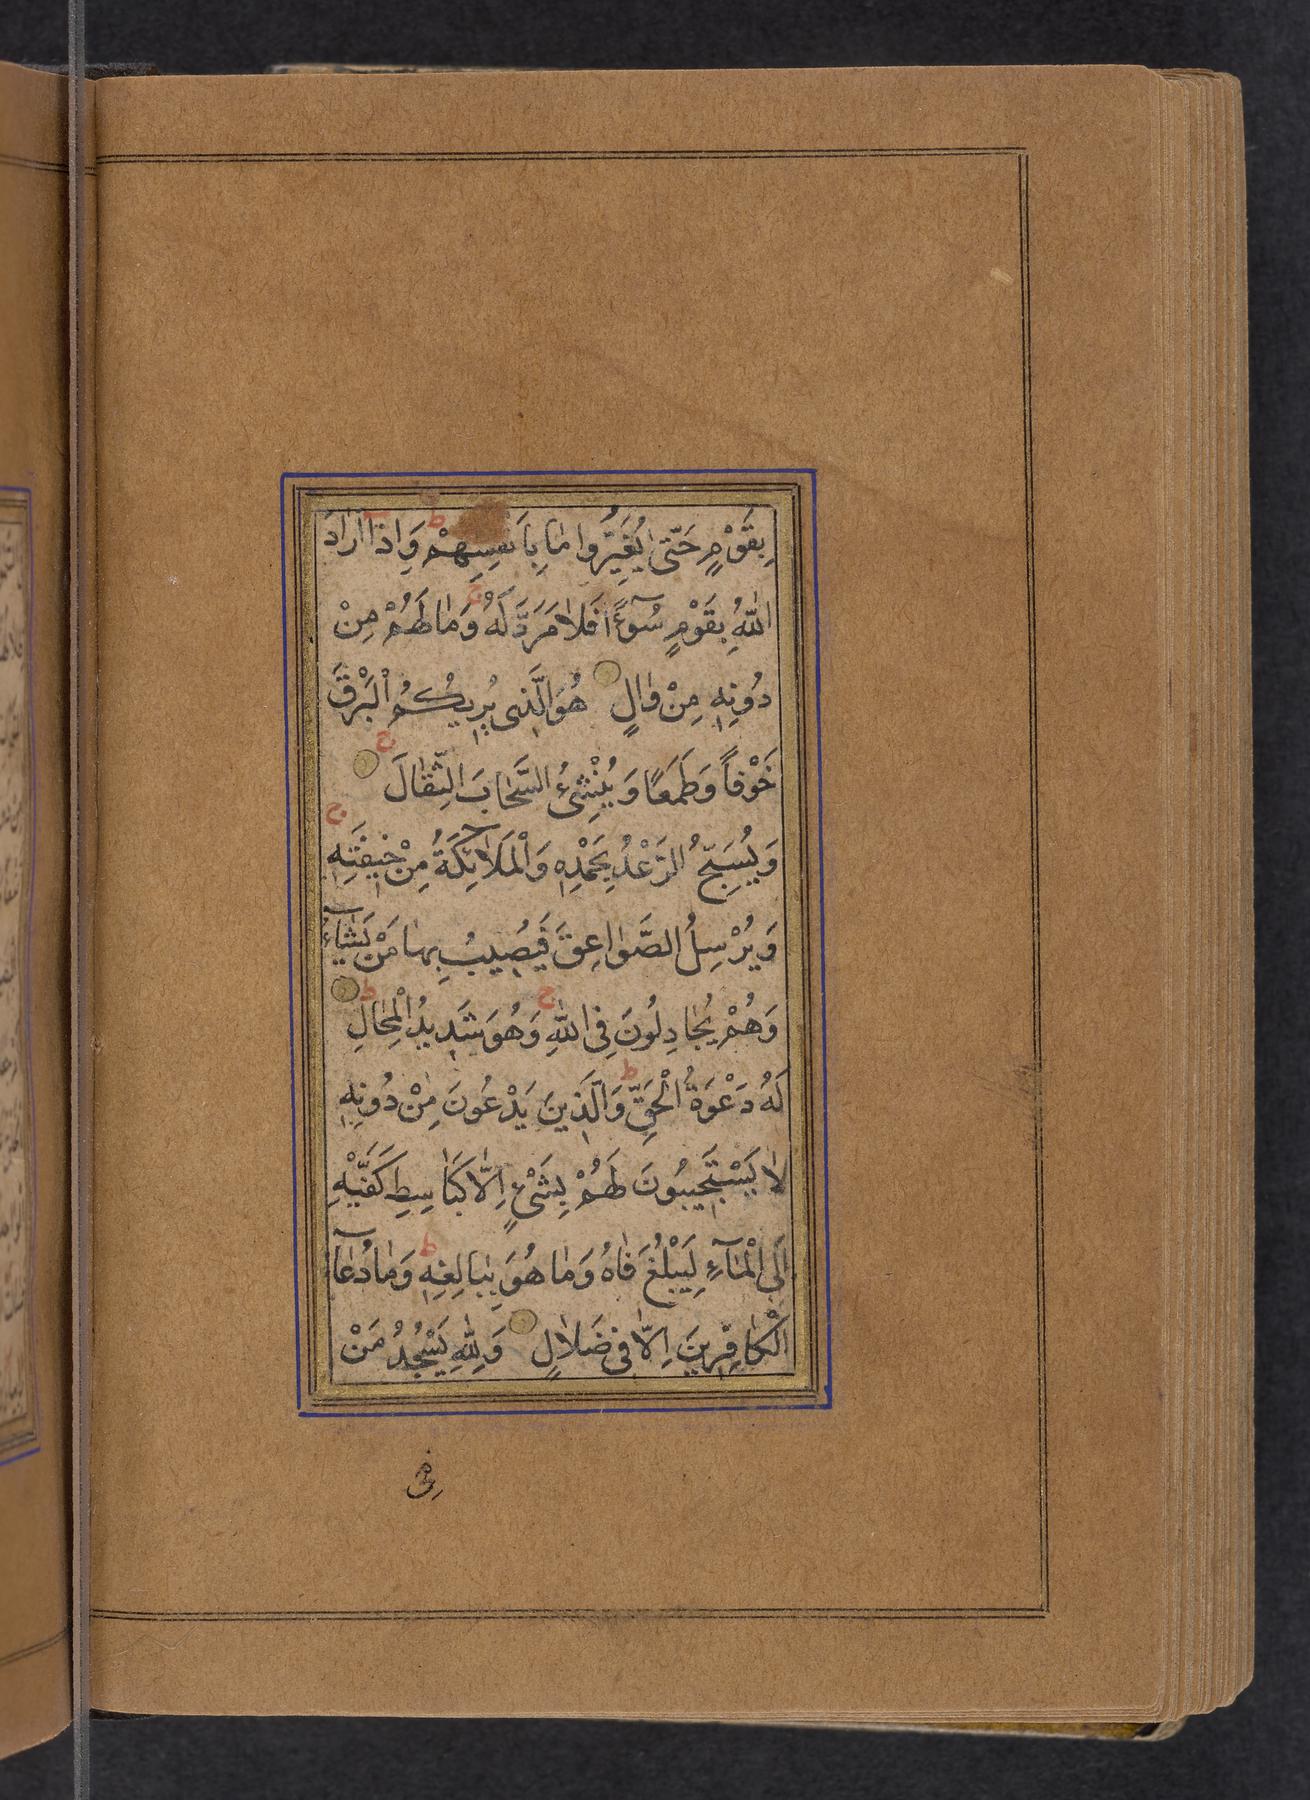 بِقَوْمٍ حَتّىٰ يُغَيِّرُوا مٰا بِاَنْفُسِهِمْ ط وَاِذٰا اَرٰادَ
اللّٰهُ بِقَوْمٍ سُوٓءًا فَلٰا مَرَدَّ لَهُ ج وَمٰا لَهُمْ مِنْ
دُونِهِ مِنْ وٰالٍ هُوَ الَّذِى يُرِيكُمُ الْبَرْقَ
خَوْفاً وَطَمَعًا وَيُنْشِئُ السَّحٰابَ الثِّقٰالَ ج
وَيُسَبِّحُ الرَّعْدُ بِحَمْدِهِ وَالْمَلٰٓائِكَةُ مِنْ خِيفَتِهِ ج
وَيُرْسِلُ الصَّوٰاعِقَ فَيُصِيبُ بِهٰا مَنْ يَشٰٓاءُ
وَهُمْ يُجٰادِلُونَ فِى اللّٰهِ ج وَهُوَ شَدِيدُ الْمِحٰالِ ط
لَهُ دَعْوَةُ الْحَقِّ ط وَالَّذِينَ يَدْعُونَ مِنْ دُونِهِ
لٰا يَسْتَجِيبُونَ لَهُمْ بِشَىْءٍ اِلّٰا كَبٰاسِطِ كَفَّيْهِ
اِلَى الْمٰٓاءِ لِيَبْلُغَ فٰاهُ وَمٰا هُوَ بِبٰالِغِهِ ط وَمٰا دُعٰٓاءُ
الْكٰافِرِينَ اِلّٰا فِى ضَلٰالٍ وَلِلّٰهِ يَسْجُدُ مَنْ
فِى